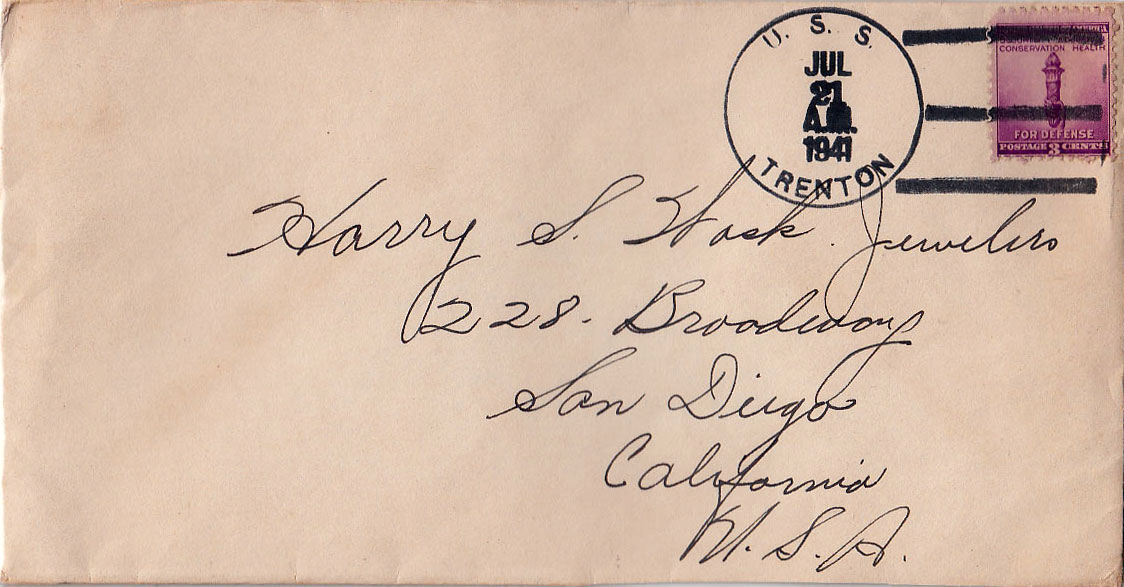 U. S. S.
JUL
21
A.M.
1941
TRENTON
CONSERVATION HEALTH
FOR DEFENSE
POSTAGE 3 CENTS
Harry S. Wask Jewelers
228. Broadway
San Diego
California
U. S. A.